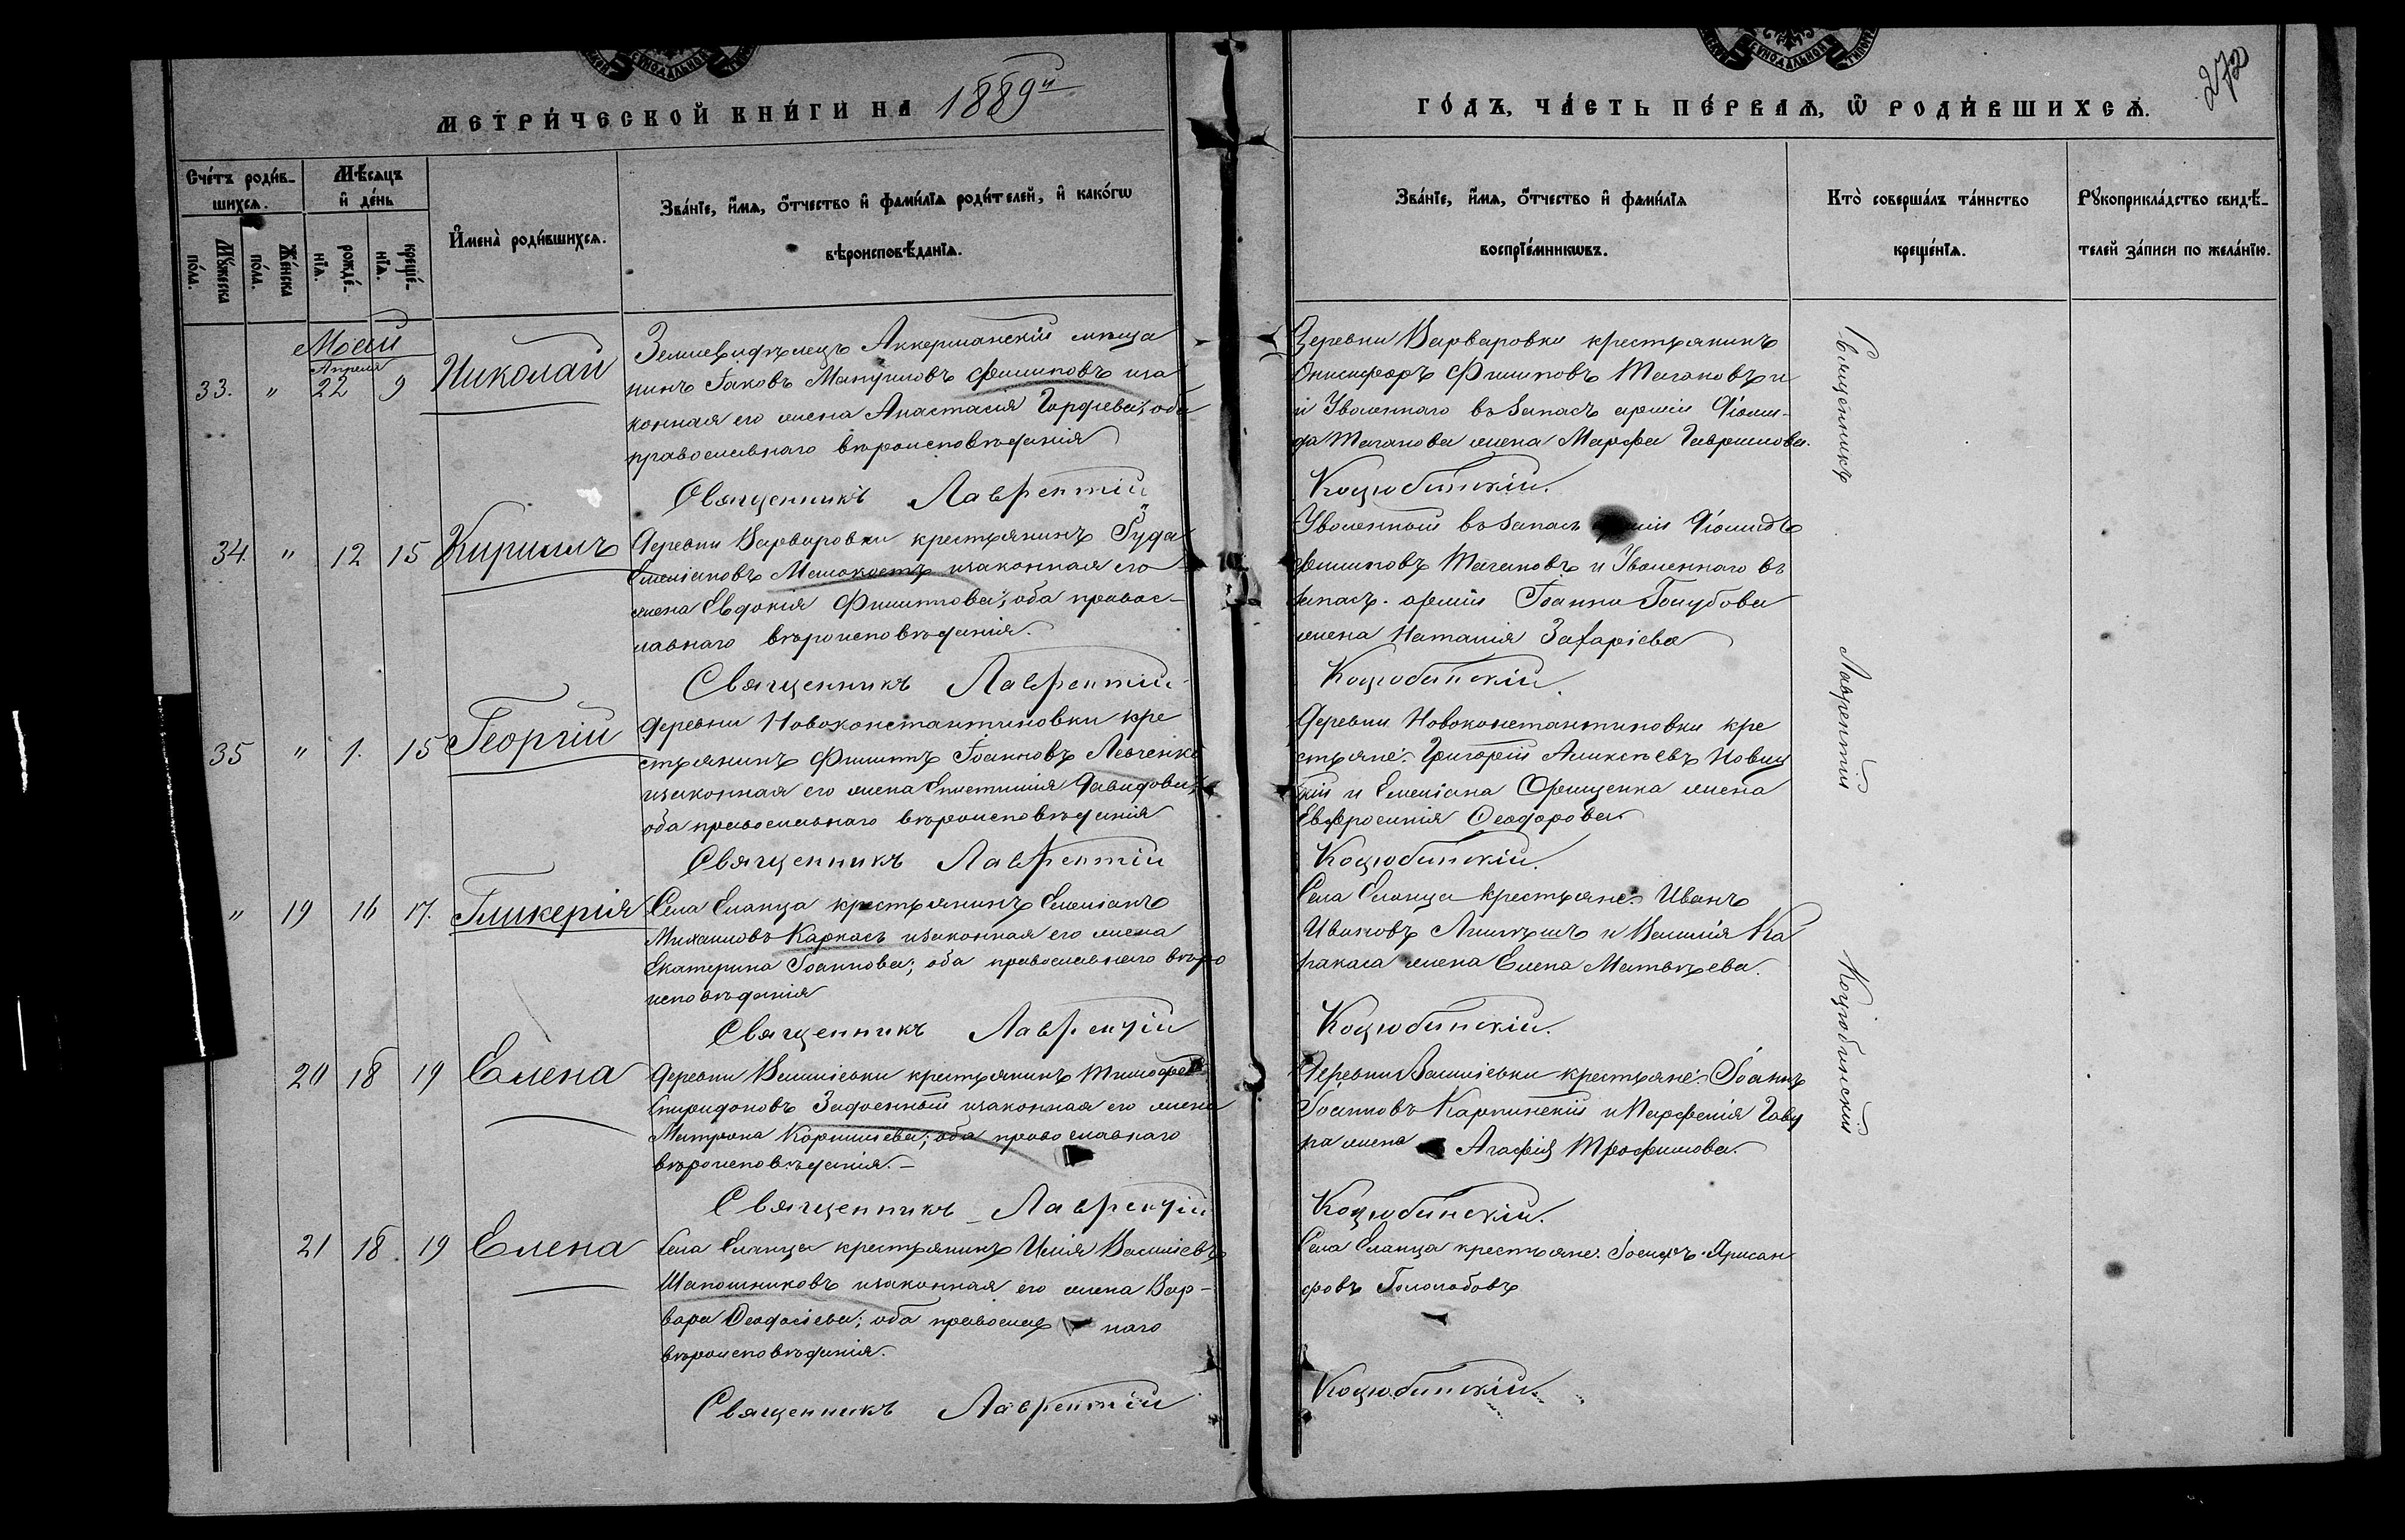 МЕТРИ́ЧЕСКОЙ КНИ́ГИ НА 1889й
ГО́ДЪ, ЧА́СТЬ ПЕ́РВАѦ, Ѡ҆ РОДИ́ВШИХСѦ.
272
Сче́тъ роди́в-
шихсѧ.
Мѣ́сяцъ
и҆ де́нь
И҆мена̀ роди́вшихсѧ.
Зва́нїе, и҆́мѧ, ѻ҆́тчество и҆ фами́лїѧ роди́телей, и҆ како́гѡ
вѣроисповѣ́данїѧ.
Мꙋ́жеска
по́ла.
Же́нска
по́ла.
рожде́-
нїѧ.
креще́-
нїѧ.
Зва́нїе, и҆́мѧ, ѻ҆́тчество и҆ фами́лїѧ
воспрїе́мникѡвъ.
Кто̀ соверша́лъ та́инство
креще́нїѧ.
Рꙋкоприкла́дство свидѣ́-
телей за́писи по жела́нїю.
Май
Апреля
33. " 22 9 Николай
Аккерманскій мѣща
нинъ Іаковъ Филиповъ иза
конная его жена Анастасія Гордіева; оба
православнаго вѣроисповѣданія
Священникъ Лаврентій
Деревни Варваровки крестьянинъ
Онисифоръ Филиповъ Тагановъ и
и Уволеннаго въ запасъ арміи Діоми-
да Таганова жена Марфа Гаврилова.
Коцюбинскій.
34. " 12 15 Кириллъ
Деревни Варваровки крестьянинъ Іуда
Емеліановъ изаконная его
жена Евдокія Филиппова; оба правос-
лавнаго вѣроисповѣданія.
Священникъ Лаврентій
Уволенный въ запасъ арміи Діомидъ
Филиповъ Тагановъ и Уволеннаго въ
запасъ арміи Іоанна Голубова
жена Наталія Захаріева
Коцюбинскій.
35 " 1. 15 Георгій
Деревни Новоконстантиновки кре
стьянинъ Филиппъ Іоанновъ Левченко
изаконная его жена Епистимія Давидова;
оба православнаго вѣроисповѣданія
Священникъ Лаврентій
Деревни Новоконстантиновки кре
стьяне: Григорій Аликсѣевъ Новиц
кій и Емеліана Орищенка жена
Евфросинія Ѳеодорова
Коцюбинскій.
" 19 16 17. Гликерія
Села Еланца крестьянинъ Емеліанъ
Михаиловъ Каркасъ изаконная его жена
Екатерина Іоаннова; оба православнаго вѣро
исповѣданія
Священникъ Лаврентій
Села Еланца крестьяне: Иванъ
Ивановъ и Василія Ка
ракаса жена Елена Матвѣева.
Коцюбинскій.
20 18 19 Елена
Деревни Василіевки крестьянинъ Тимофей
Спиридоновъ Задоенный изаконная его жена
Матрона Корниліева; оба православнаго
вѣроисповѣданія.-
Священникъ Лаврентій
Деревни Василіевки крестьяне: Іоаннъ
Іоанновъ Карпинскій и Парфенія Гаву
ра жена Агафія Трофимова.
Коцюбинскій.
21 18. 19 Елена
Села Еланца крестьянинъ Илія Василіевъ
Шапошниковъ изаконная его жена Вар-
вара Ѳеодосіева; оба православ наго
вѣроисповѣданія.
Священникъ Лаврентій
Села Еланца крестьяне: Іосифъ
Гололобовъ
Коцюбинскій.
Священникъ
Лаврентій
Коцюбинскій